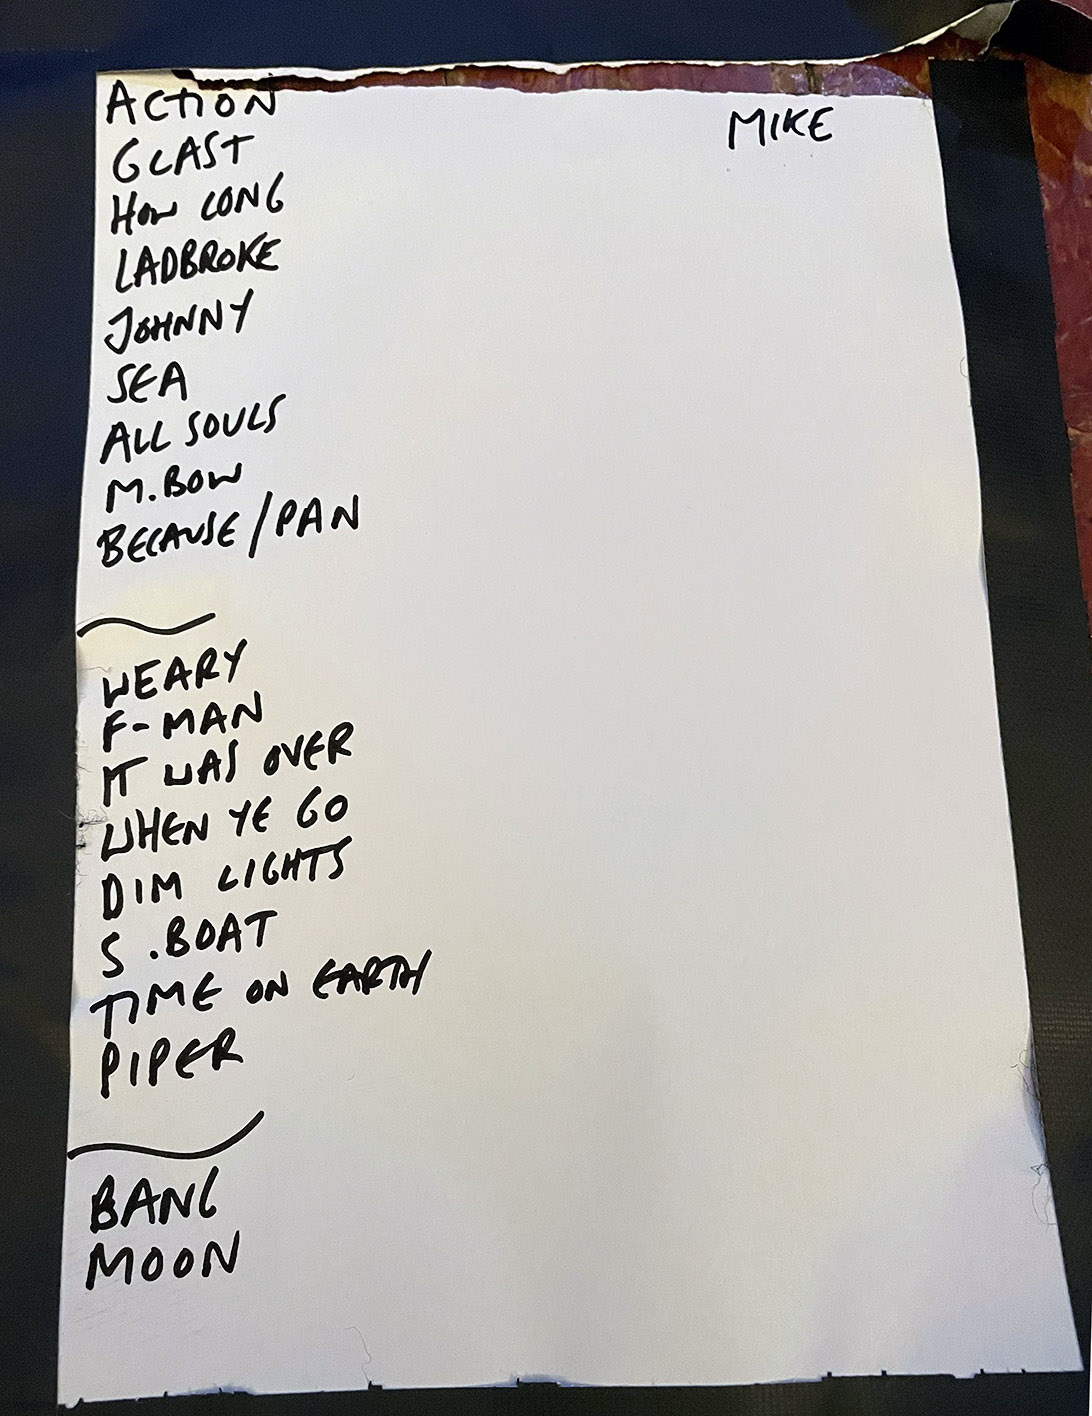 ACTION
MIKE
GLAST
HOW LONG
LADBROKE
JOHNNY
SEA
ALL SOULS
M.BOW
BECAUSE/PAN
WEARY
F-MAN
IT WAS OVER
WHEN YE GO
DIM LIGHTS
S.BOAT
TIME ON EARTH
PIPER
BANG
MOON